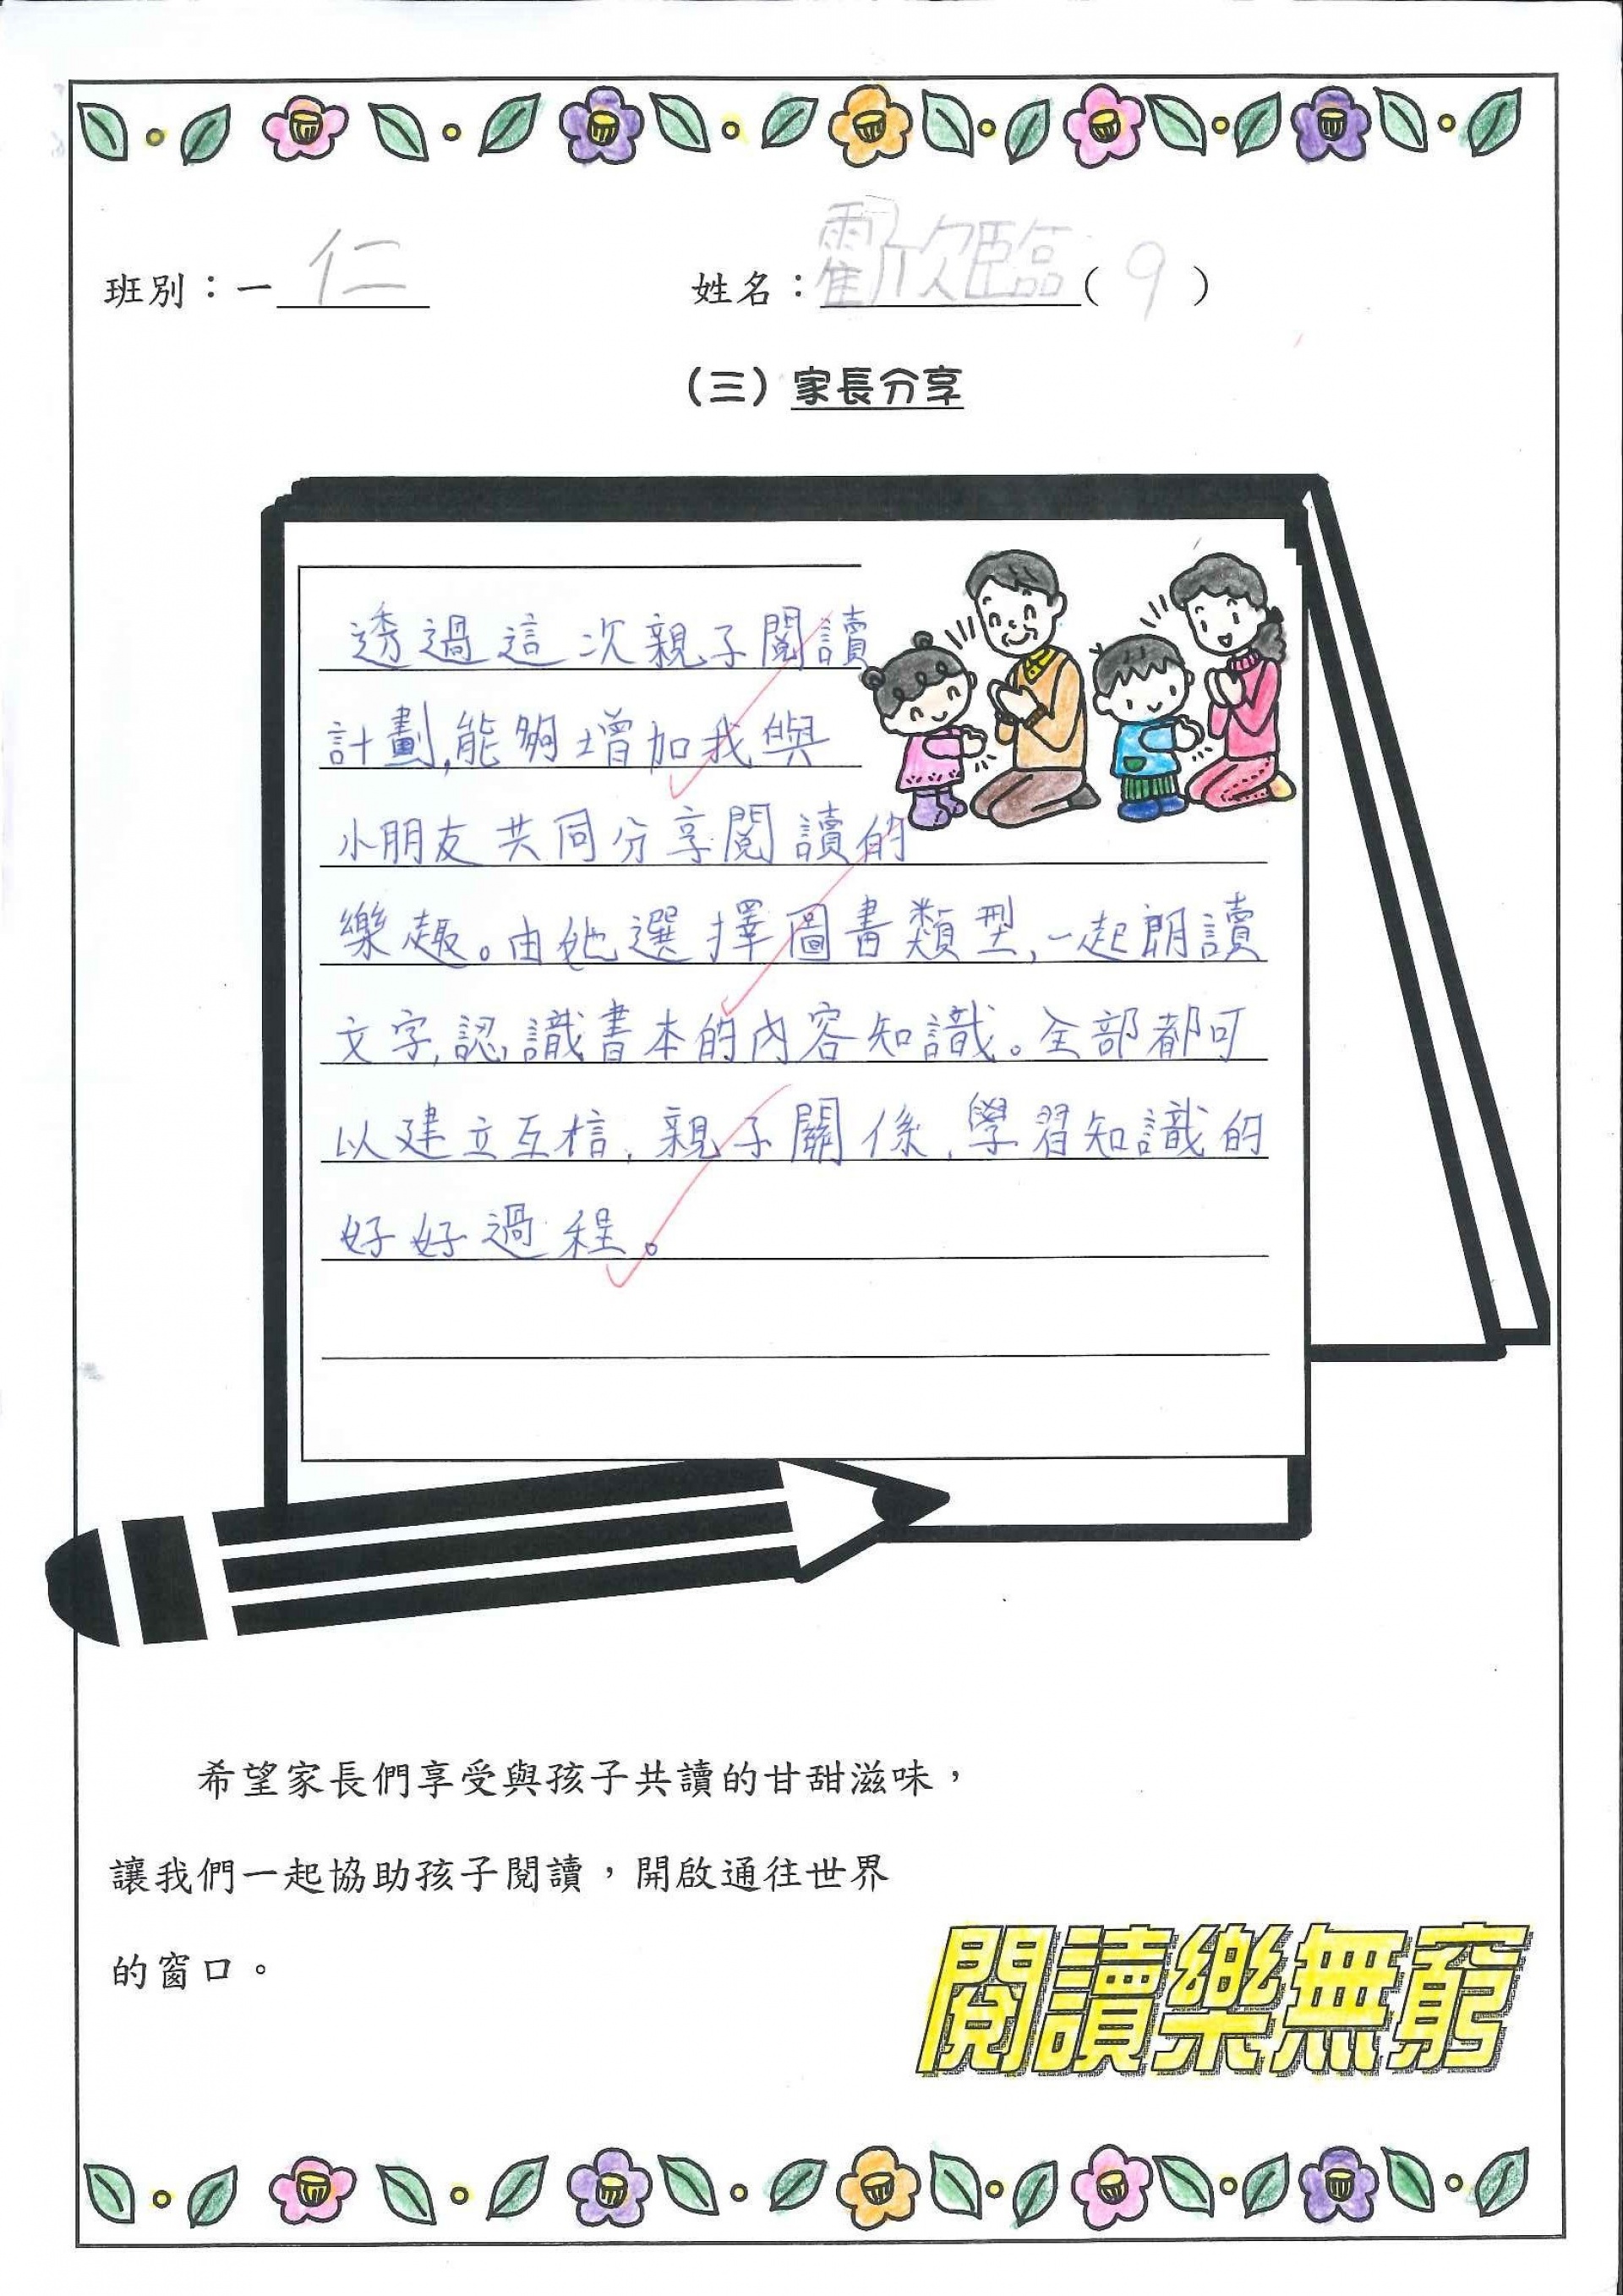 班別：一仁 姓名：霍欣臨(9)
（三）家長分享
透過這次親子閱讀
計劃,能夠增加我與
小朋友共同分享閱讀的
樂趣。由她選擇圖書類型,一起朗讀
文字,認識書本的內容知識。全部都可
以建立互信,親子關係,學習知識的
好好過程。
希望家長們享受與孩子共讀的甘甜滋味，
讓我們一起協助孩子閱讀，開啟通往世界
的窗口。
閱讀樂無窮